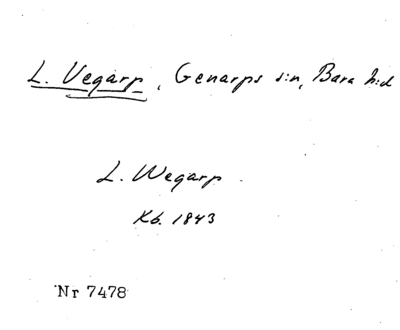 L. Vegarp, Genarps s:n, Bara h:d
L. Wegarp.
Kb. 1843
Nr 7478